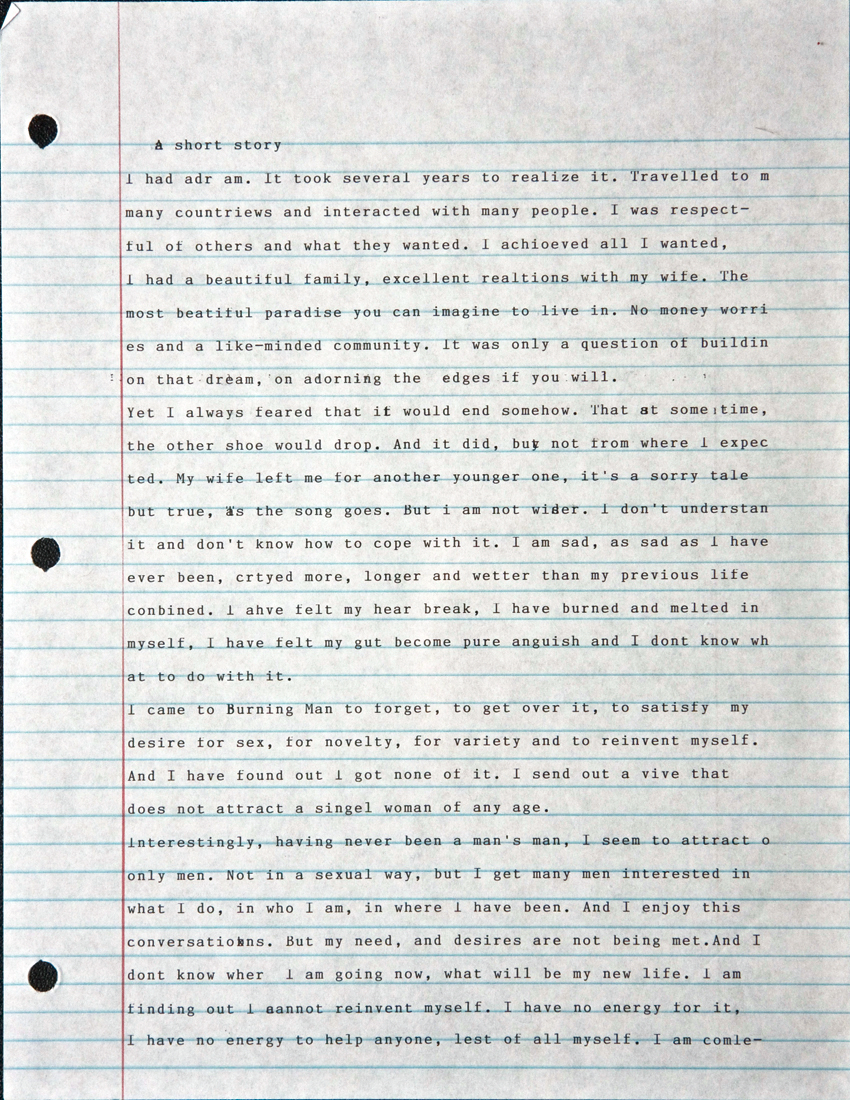 A short story
I had adr am. It took several years to realize it. Travelled to m
many countriews and interacted with many people. I was respect-
ful of others and what they wanted. I achioeved all I wanted,
I had a beautiful family, excellent realtions with my wife. The
most beatiful paradise you can imagine to live in. No money worri
es and a like-minded community. It was only a question of buildin
on that dream, on adorning the edges if you will.
Yet I always feared that it would end somehow. That at some time,
the other shoe would drop. And it did, but not from where I expec
ted. My wife left me for another younger one, it's a sorry tale
but true, as the song goes. But i am not wider. I don't understan
it and don't know how to cope with it. I am sad, as sad as I have
ever been, crtyed more, longer and wetter than my previous life
conbined. I ahve felt my hear break, I have burned and melted in
myself, I have felt my gut become pure anguish and I dont know wh
at to do with it.
I came to Burning Man to forget, to get over it, to satisfy my
desire for sex, for novelty, for variety and to reinvent myself.
And I have found out I got none of it. I send out a vive that
does not attract a singel woman of any age.
Interestingly, having never been a man's man, I seem to attract o
only men. Not in a sexual way, but I get many men interested in
what I do, in who I am, in where I have been. And I enjoy this
conversations. But my need, and desires are not being met.And I
dont know wher I am going now, what will be my new life. I am
finding out I cannot reinvent myself. I have no energy for it,
I have no energy to help anyone, lest of all myself. I am comle-